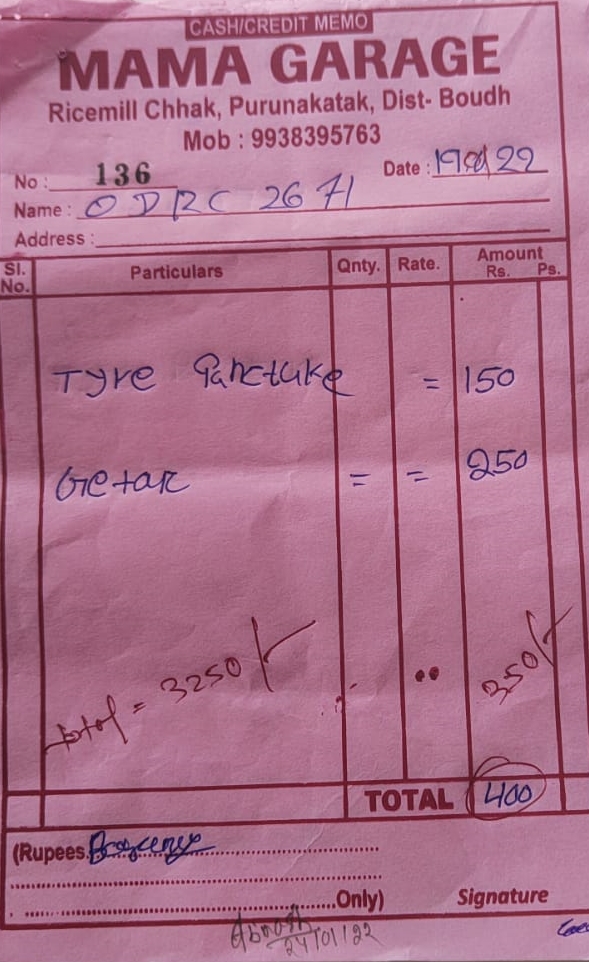 CASH/CREDIT MEMO
MAMA GARAGE
Ricemill Chhak, Purunakatak, Dist- Boudh
Mob : 9938395763
No : 136 Date : 22
Name : ODRC 2671
Address :
Sl. No. Particulars Qnty. Rate. Amount Rs. Ps.
Tyre Pancture = 150
Getar = = 250
total = 3250/- 350/-
TOTAL 400
(Rupees
Only) Signature
24/01/22